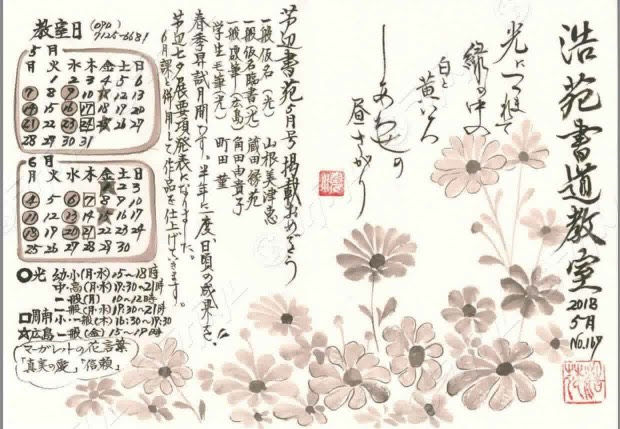 浩苑書道教室
2018
5月
No.169
光につれて
緑の中の
白と
黄いろ
しあわせの
昼さがり
書苑5月号掲載おめでとう
一般仮名(光) 山根美津恵
一般仮名臨書(光) 蔵田緑苑
一般硬筆(広島) 角田由貴子
学生毛筆(光) 町田菫
春季昇試月間です。半年に一度、日頃の成果を!!
七夕展要項発表になりました。
6月課と併用して作品を仕上げてきます。
教室日 (090)
7125-6681
5月
月 火 水 木 金 土 日
1 2 3 4 5 6
7 8 9 10 11 12 13
14 15 16 17 18 19 20
21 22 23 24 25 26 27
28 29 30 31
6月
月 火 水 木 金 土 日
1 2 3
4 5 6 7 8 9 10
11 12 13 14 15 16 17
18 19 20 21 22 23 24
25 26 27 28 29 30
光 幼・小(月・水) 15〜18時
中・高(月・水) 19:30〜21時
一般(月) 10〜12時
一般(月・水) 19:30〜21時
周南 小・一般(木) 16:30〜19:30
広島 一般(金) 15〜19時
マーガレットの花言葉
「真実の愛」「信頼」